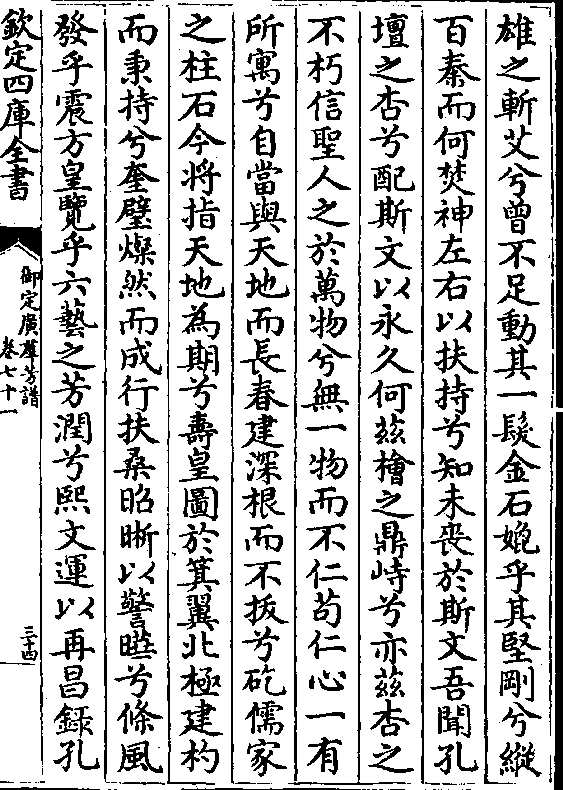 雄之斬艾兮曾不足動其一髮金石媲乎其堅剛兮縱
百秦而何焚神左右以扶持兮知未喪於斯文吾聞孔
壇之杏兮配斯文以永久何茲檜之鼎峙兮亦茲杏之
不朽信聖人之於萬物兮無一物而不仁苟仁心一有
所寓兮自當與天地而長春建深根而不拔兮矻儒家
之柱石今將指天地為期兮壽皇圖於箕翼北極建杓
而秉持兮奎璧燦然而成行扶桑昭晰以警曀兮條風
發乎震方皇覽乎六藝之芳潤兮熙文運以再昌錄孔
欽定四庫全書
御定廣羣芳譜
卷七十一
三十四